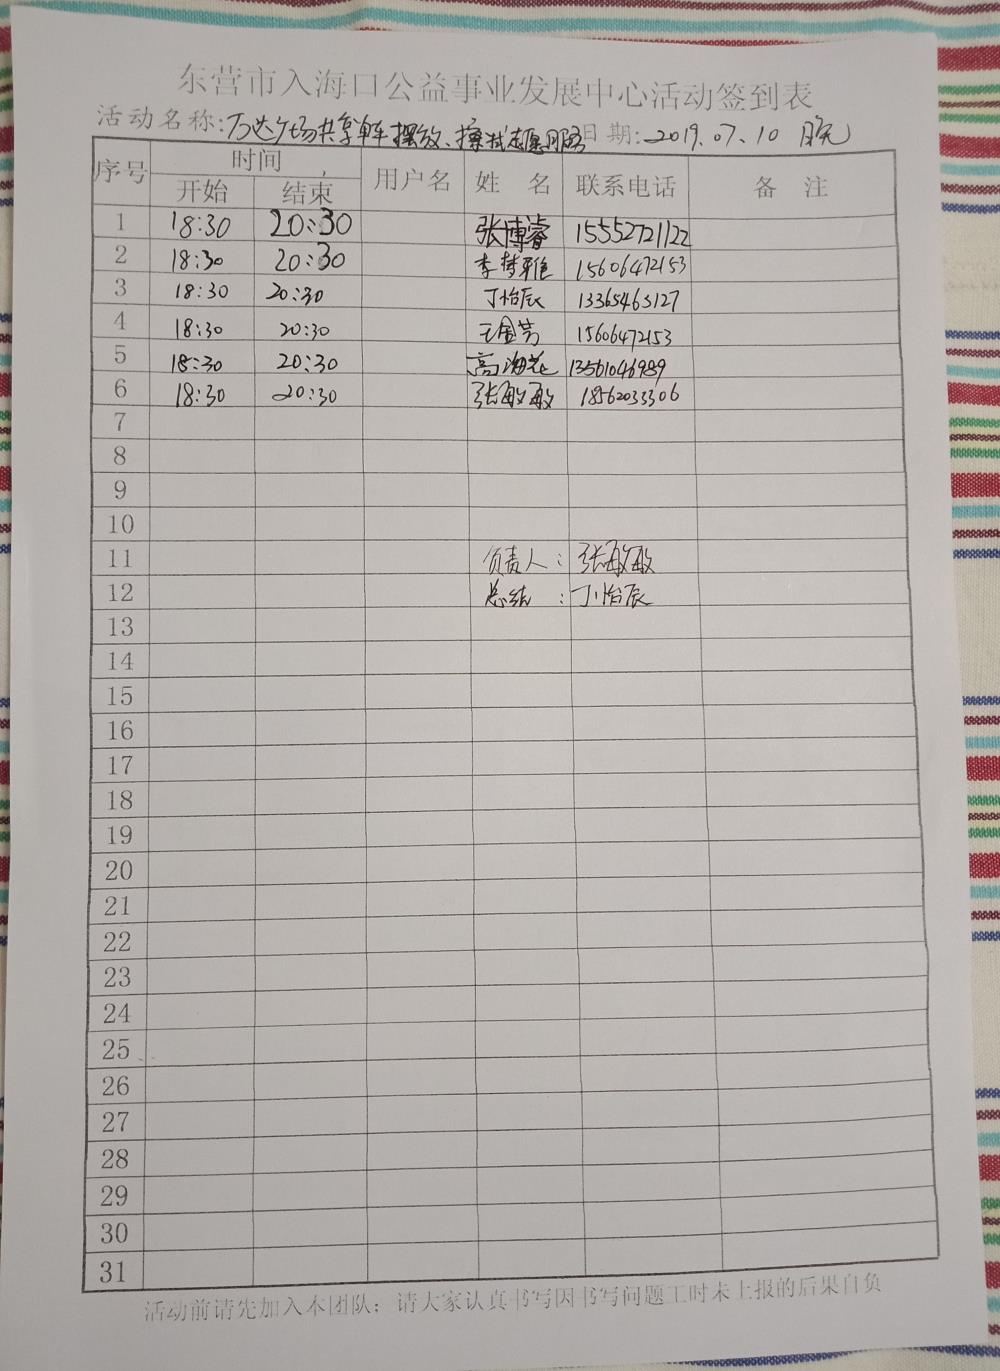 东营市入海口公益事业发展中心活动签到表
活动名称:万达广场共享单车摆放、擦拭志愿服务 日期:2019.07.10 晚
序号 时间 用户名 姓 名 联系电话 备 注
开始 结束
1 18:30 20:30 张博睿 15552721122
2 18:30 20:30 李梦雅 15606472153
3 18:30 20:30 丁怡辰 13365465127
4 18:30 20:30 王金芳 15606472153
5 18:30 20:30 高海花 13561046989
6 18:30 20:30 张敏敏 18562033306
7
8
9
10
11 负责人:张敏敏
12 总结:丁怡辰
13
14
15
16
17
18
19
20
21
22
23
24
25
26
27
28
29
30
31
活动前请先加入本团队;请大家认真书写因书写问题工时未上报的后果自负